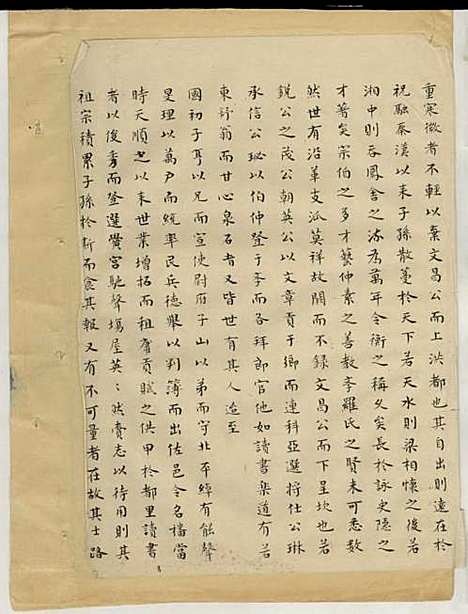 重冥微者不輕以棄文昌公而上洪都也其自出則遠在於
祝融秦漢以來子孫散蔓於天下若天水則梁相懷之後若
湘中則吞鳳舍之派為萬年令衡之稱久矣長於詠史隱之
才著矣宗伯之多才藝仲素之善教李羅氏之賢未可悉數
然世有沿革支派莫祥故闕而不錄文昌公而下呈坎也若
銳公之茂公朝英公以文章貢于鄉而連科亞選將仕公琳
承信公珌以伯仲登于季而各拜郎官他如讀書樂道有若
東舒翁而甘心泉石者又皆世有其人迨至
國初子亨以兄而宣使尉府子山以弟而守北平綽有能聲
旻理以萬户而統率民兵德舉以判簿而出佐邑令名播當
時天順之以來世業增拓而租賦貢賦之供甲於都里讀書
者以俊秀而登選黌宮馳聲塲屋英英然賫志以待用則其
祖宗積累子孫於斯而食其報又有不可量者在故其士路